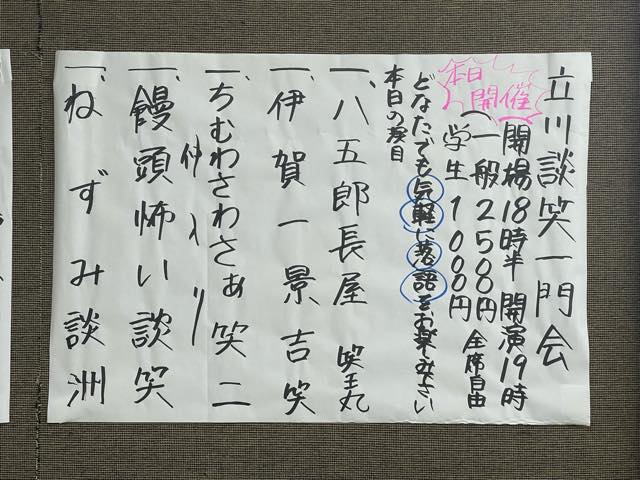 立川談笑一門会
本日開催
開場18時半 開演19時
(一般2500円 全席自由
学生1000円
どなたでも気軽に落語をお楽しみ下さい
本日の演目
一、八五郎長屋 笑王丸
一、伊賀一景 吉笑
一、ちむわさわさぁ 笑二
仲入り
一、饅頭怖い 談笑
一、ねずみ 談洲